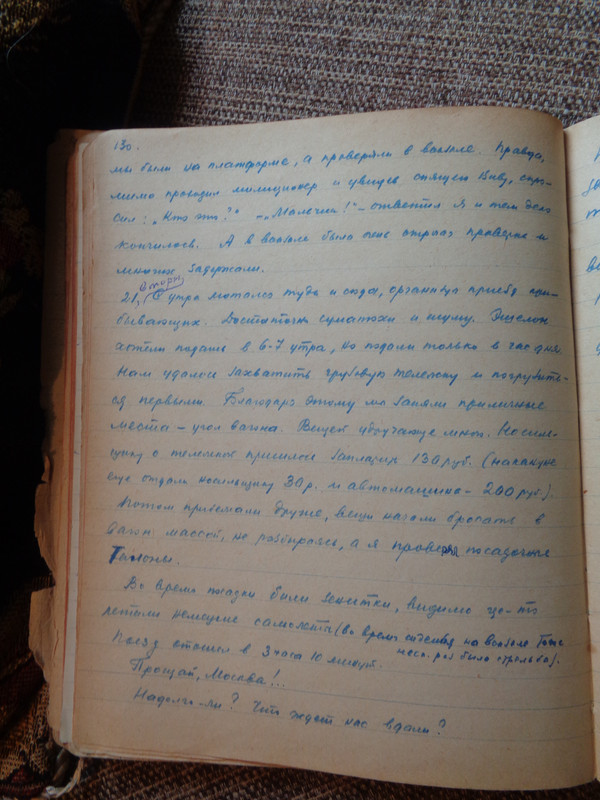 130.
мы были на платформе, а проверяли в вокзале. Правда,
мимо проходил милиционер и увидев спящего Виву, спро-
сил: „Кто это?“ – „Мальчик!“ – ответил я и тем дело
кончилось. А в вокзале было пять отрядов проверки и
многих задержали.
Вторн.
21. С утра мотался туда и сюда, организуя приезд при-
бывающих. Достаточно суматохи и шуму. Эшелон
хотели подать в 6-7 утра, но подали только в час дня.
Нам удалось захватить грузовую тележку и погрузить-
ся первыми. Благодаря этому мы заняли приличные
места – угол вагона. Вещей удручающе много. Носиль-
щику с тележкой пришлось заплатить 130 руб. (накануне
еще отдали носильщику 30 р. и автомашине – 200 руб.).
Потом приехали другие, вещи начали бросать в
вагон массой, не разбираясь, а я проверял посадочные
талоны.
Во время посадки били зенитки, видимо где-то
летали немецкие самолеты (во время сидения на вокзале тоже
неск. раз была стрельба).
Поезд отошел в 3 часа 10 минут.
Прощай, Москва!...
Надолго-ли? Что ждет нас вдали?